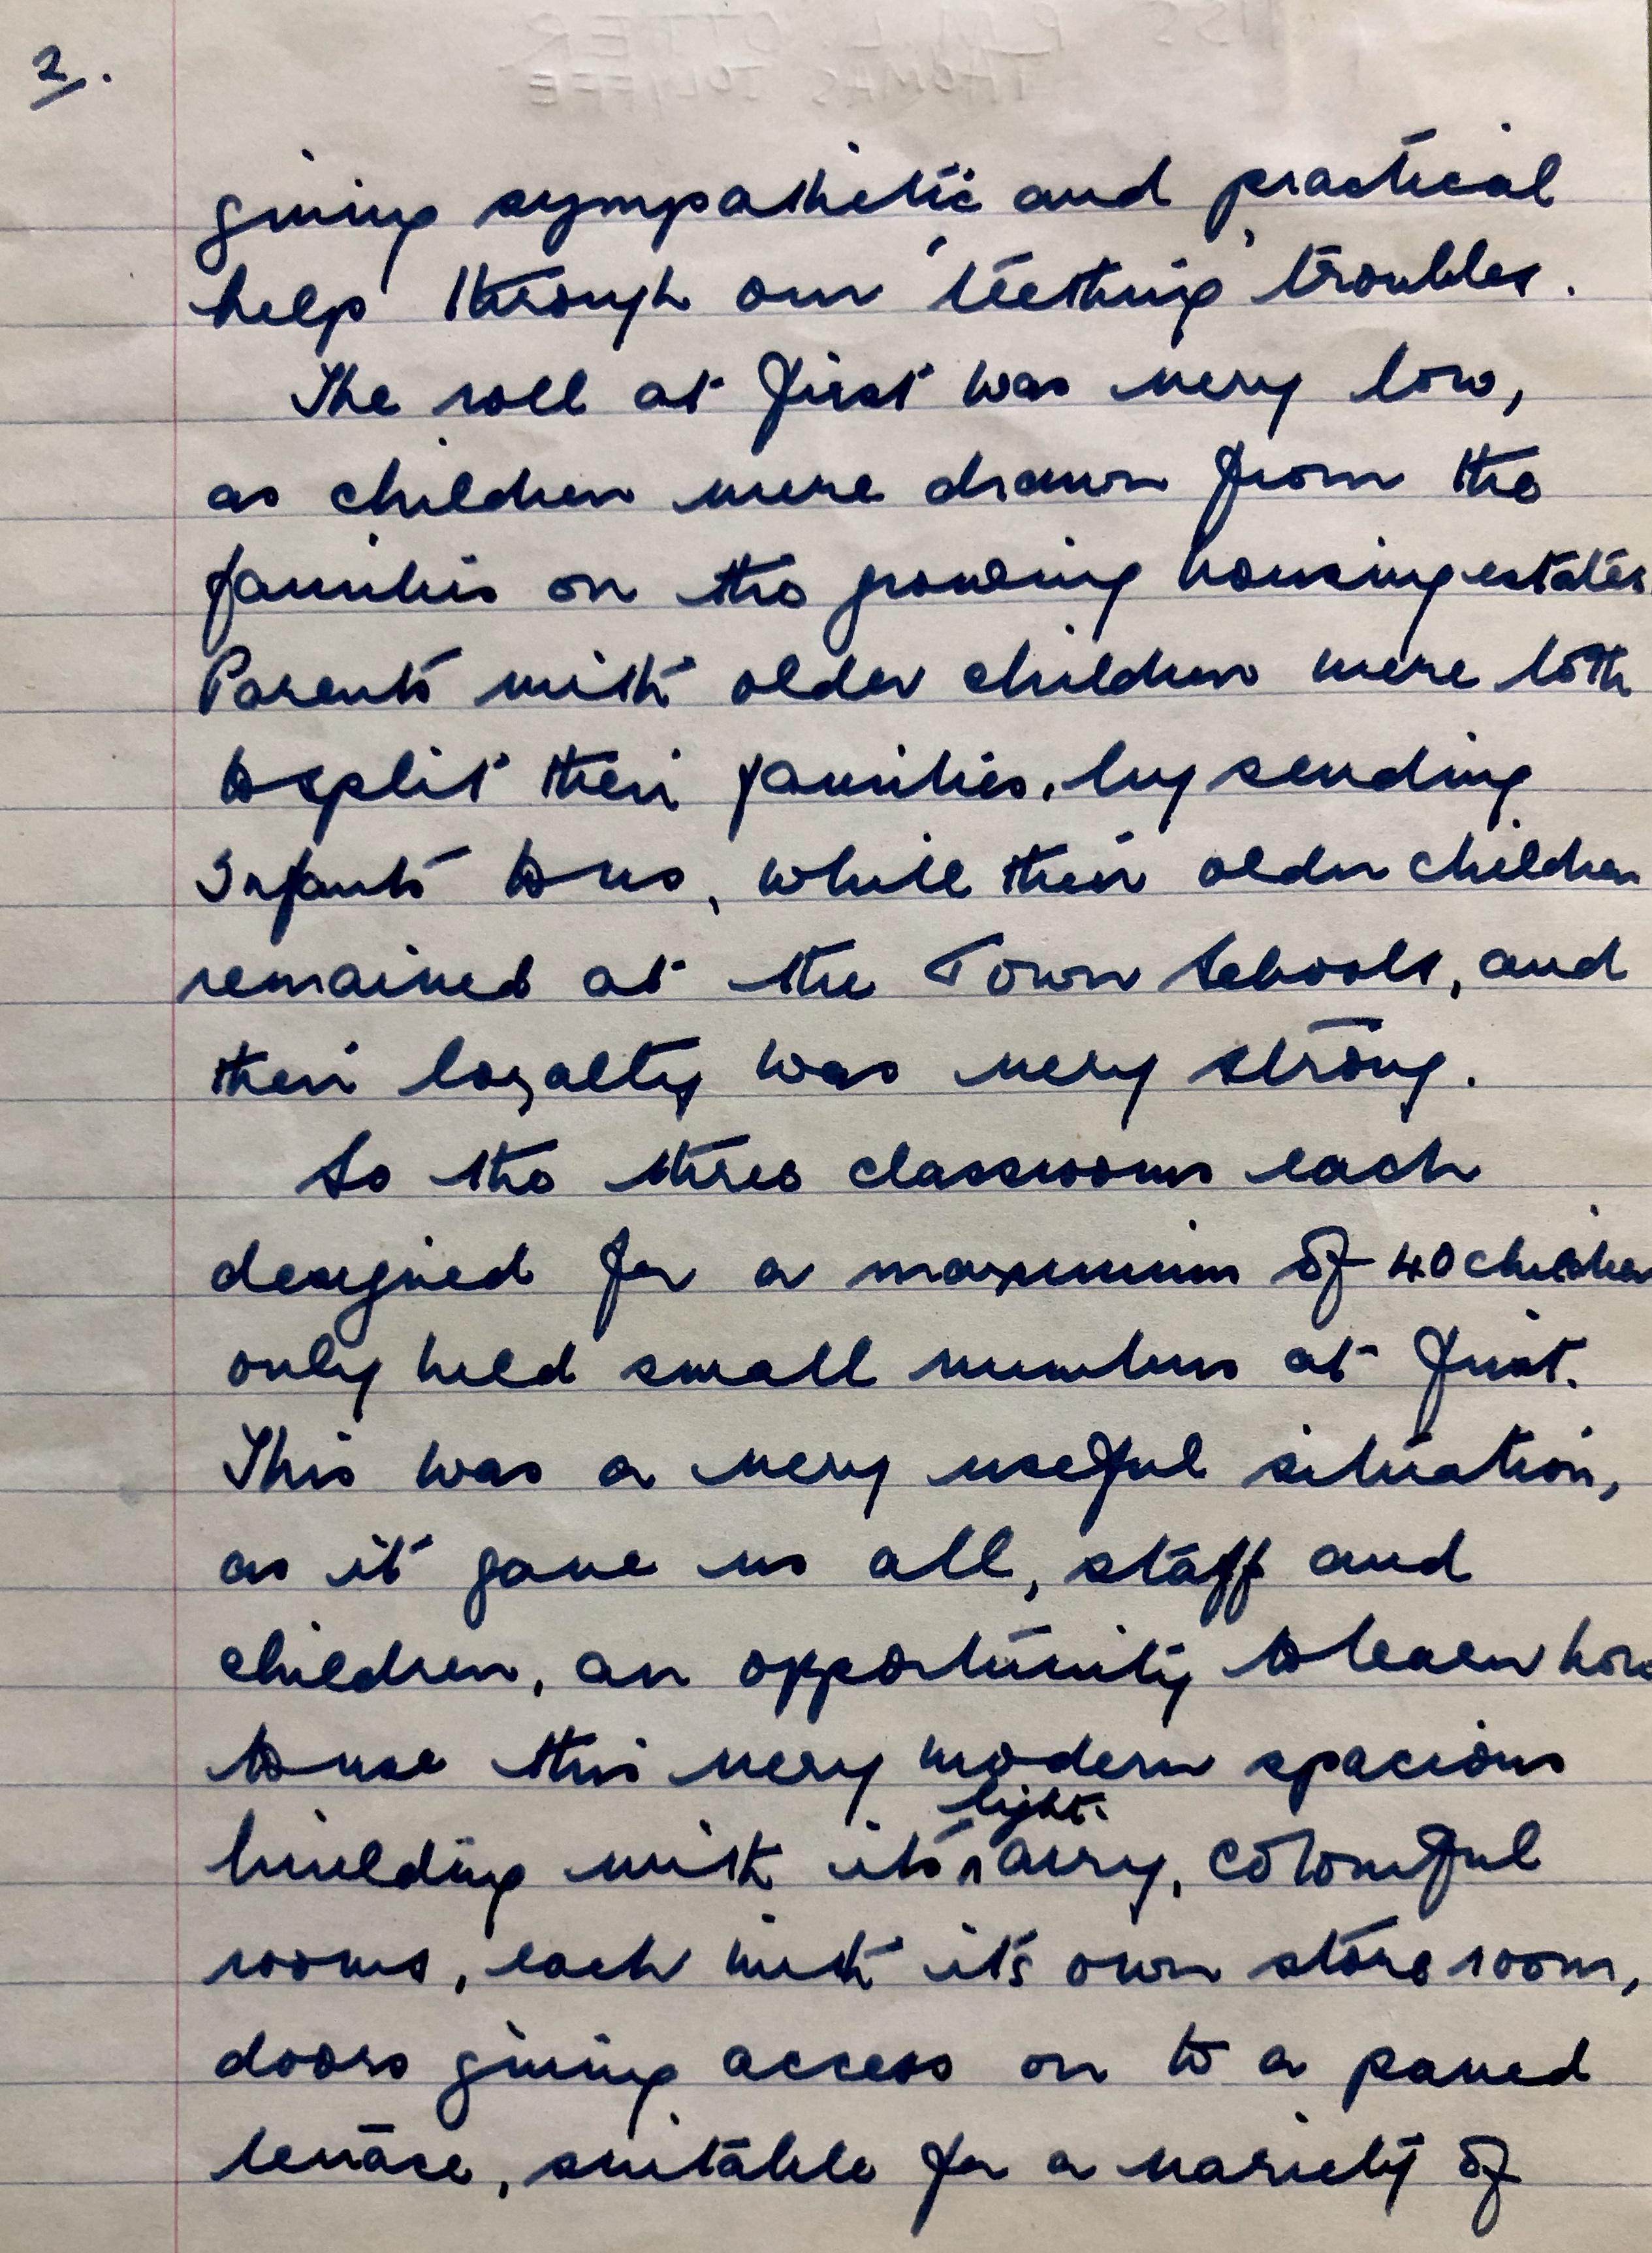 2.
giving sympathetic and practical
help through our 'teething' troubles.
The roll at first was very low,
as children were drawn from the
families on the growing housing estates.
Parents with older children were loth
to split their families, by sending
Infants to us, while their older children
remained at the Town Schools, and
their loyalty was very strong.
So the three classrooms each
designed for a maximum of 40 children
only held small numbers at first.
This was a very useful situation,
as it gave us all, staff and
children, an opportunity to learn how
to use this very modern spacious
light.
building with its airy, colourful
rooms, each with it's own store room,
doors giving access on to a paved
terrace, suitable for a variety of